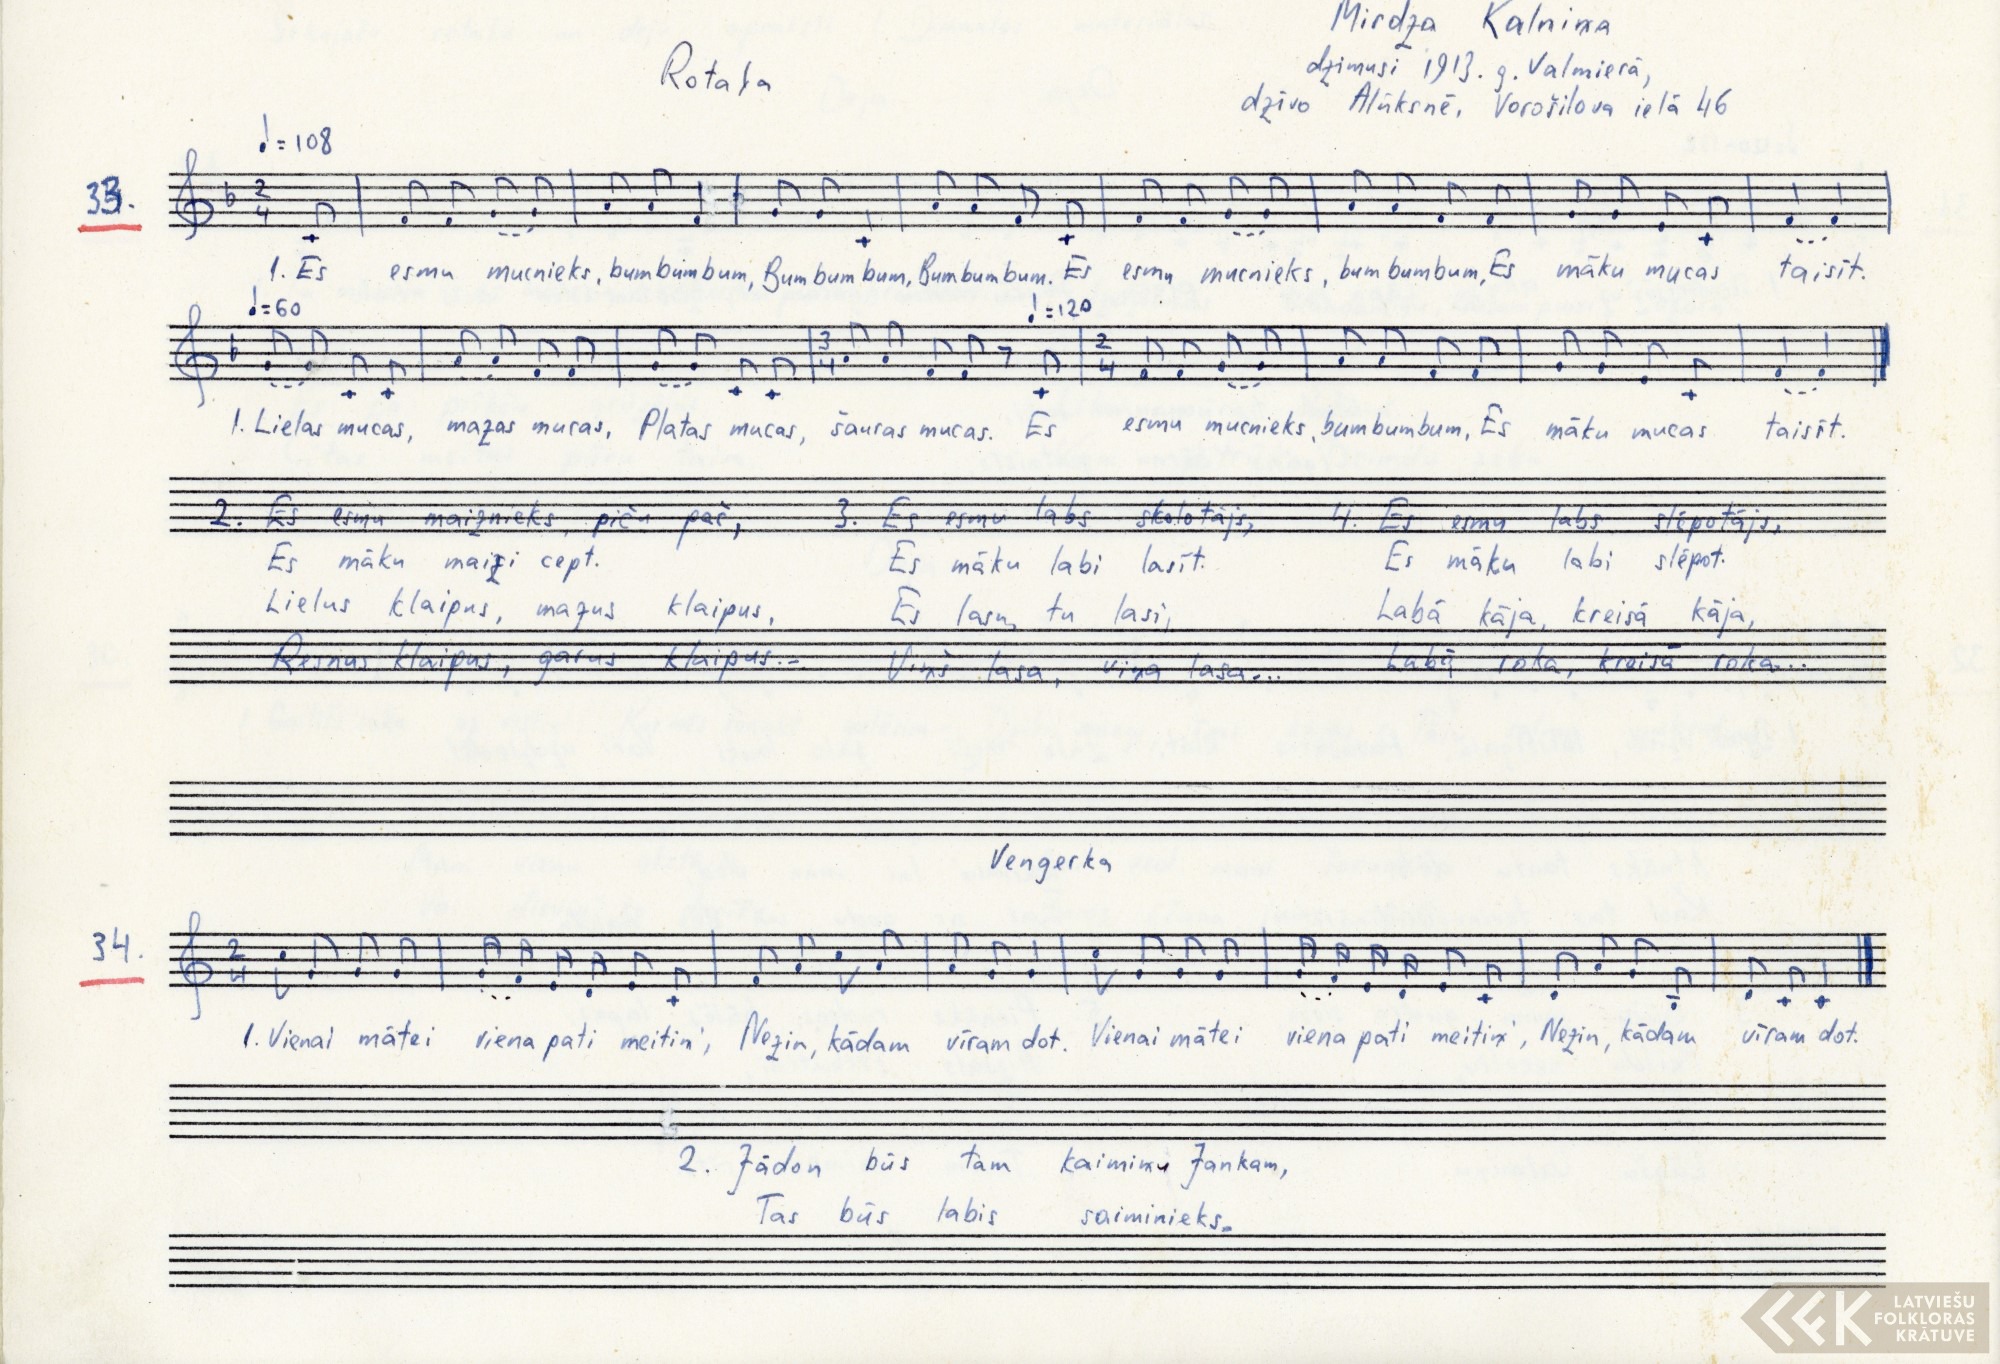 Mirdza Kalniņa
Rotaļa
dzimusi 1913. g. Valmierā,
dzīvo Alūksnē, Vorošilova ielā 46
♩=108
33.
2/4
1. Es esmu mucnieks, bumbumbum, Bumbumbum, Bumbumbum. Es esmu mucnieks, bumbumbum, Es māku mucas taisīt.
♩=60 ♩=120
3/4 2/4
1. Lielas mucas, mazas mucas, Platas mucas, šauras mucas. Es esmu mucnieks, bumbumbum, Es māku mucas taisīt.
2. Es esmu maiznieks, piču pač,
Es māku maizi cept.
Lielus klaipus, mazus klaipus,
Resnus klaipus, garus klaipus...
3. Es esmu labs skolotājs,
Es māku labi lasīt.
Es lasu, tu lasi,
Viņš lasa, viņa lasa...
4. Es esmu labs slēpotājs,
Es māku labi slēpot.
Labā kāja, kreisā kāja,
Labā roka, kreisā roka...
Vengerka
34.
2/4
1. Vienai mātei viena pati meitiņ', Nezin, kādam vīram dot. Vienai mātei viena pati meitiņ', Nezin, kādam vīram dot.
2. Jādon būs tam kaimiņu Jankam,
Tas būs labis saiminieks.
LATVIEŠU
FOLKLORAS
KRĀTUVE